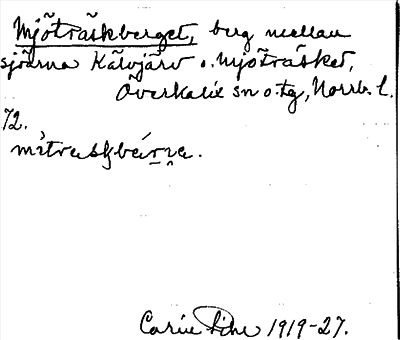 Mjöträskberget, berg mellan
sjöarna Kälvjärv o. Mjöträsket,
Överkalix sn o. tg, Norrb. l.
72.
Carin Pihl 1919-27.